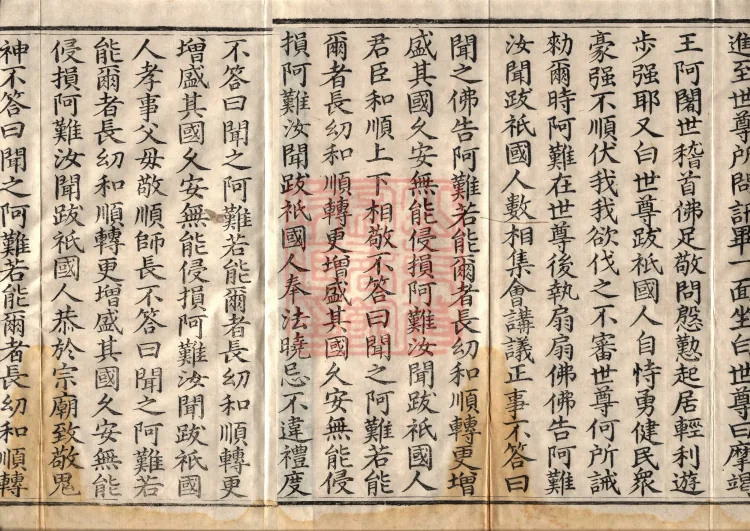 進至世尊所問訊畢一面坐白世尊曰摩竭
王阿闍世稽首佛足敬問慇懃起居輕利遊
步强耶又白世尊跋祇國人自恃勇健民衆
豪强不順伏我我欲伐之不審世尊何所誡
勑爾時阿難在世尊後執扇扇佛佛告阿難
汝聞跋祇國人數相集會講議正事不答曰
聞之佛告阿難若能爾者長幼和順轉更增
盛其國久安無能侵損阿難汝聞跋祇國人
君臣和順上下相敬不答曰聞之阿難若能
爾者長幼和順轉更增盛其國久安無能侵
損阿難汝聞跋祇國人奉法曉忌不違禮度
不答曰聞之阿難若能爾者長幼和順轉更
增盛其國久安無能侵損阿難汝聞跋祇國
人孝事父母敬順師長不答曰聞之阿難若
能爾者長幼和順轉更增盛其國久安無能
侵損阿難汝聞跋祇國人恭於宗廟致敬鬼
神不答曰聞之阿難若能爾者長幼和順轉